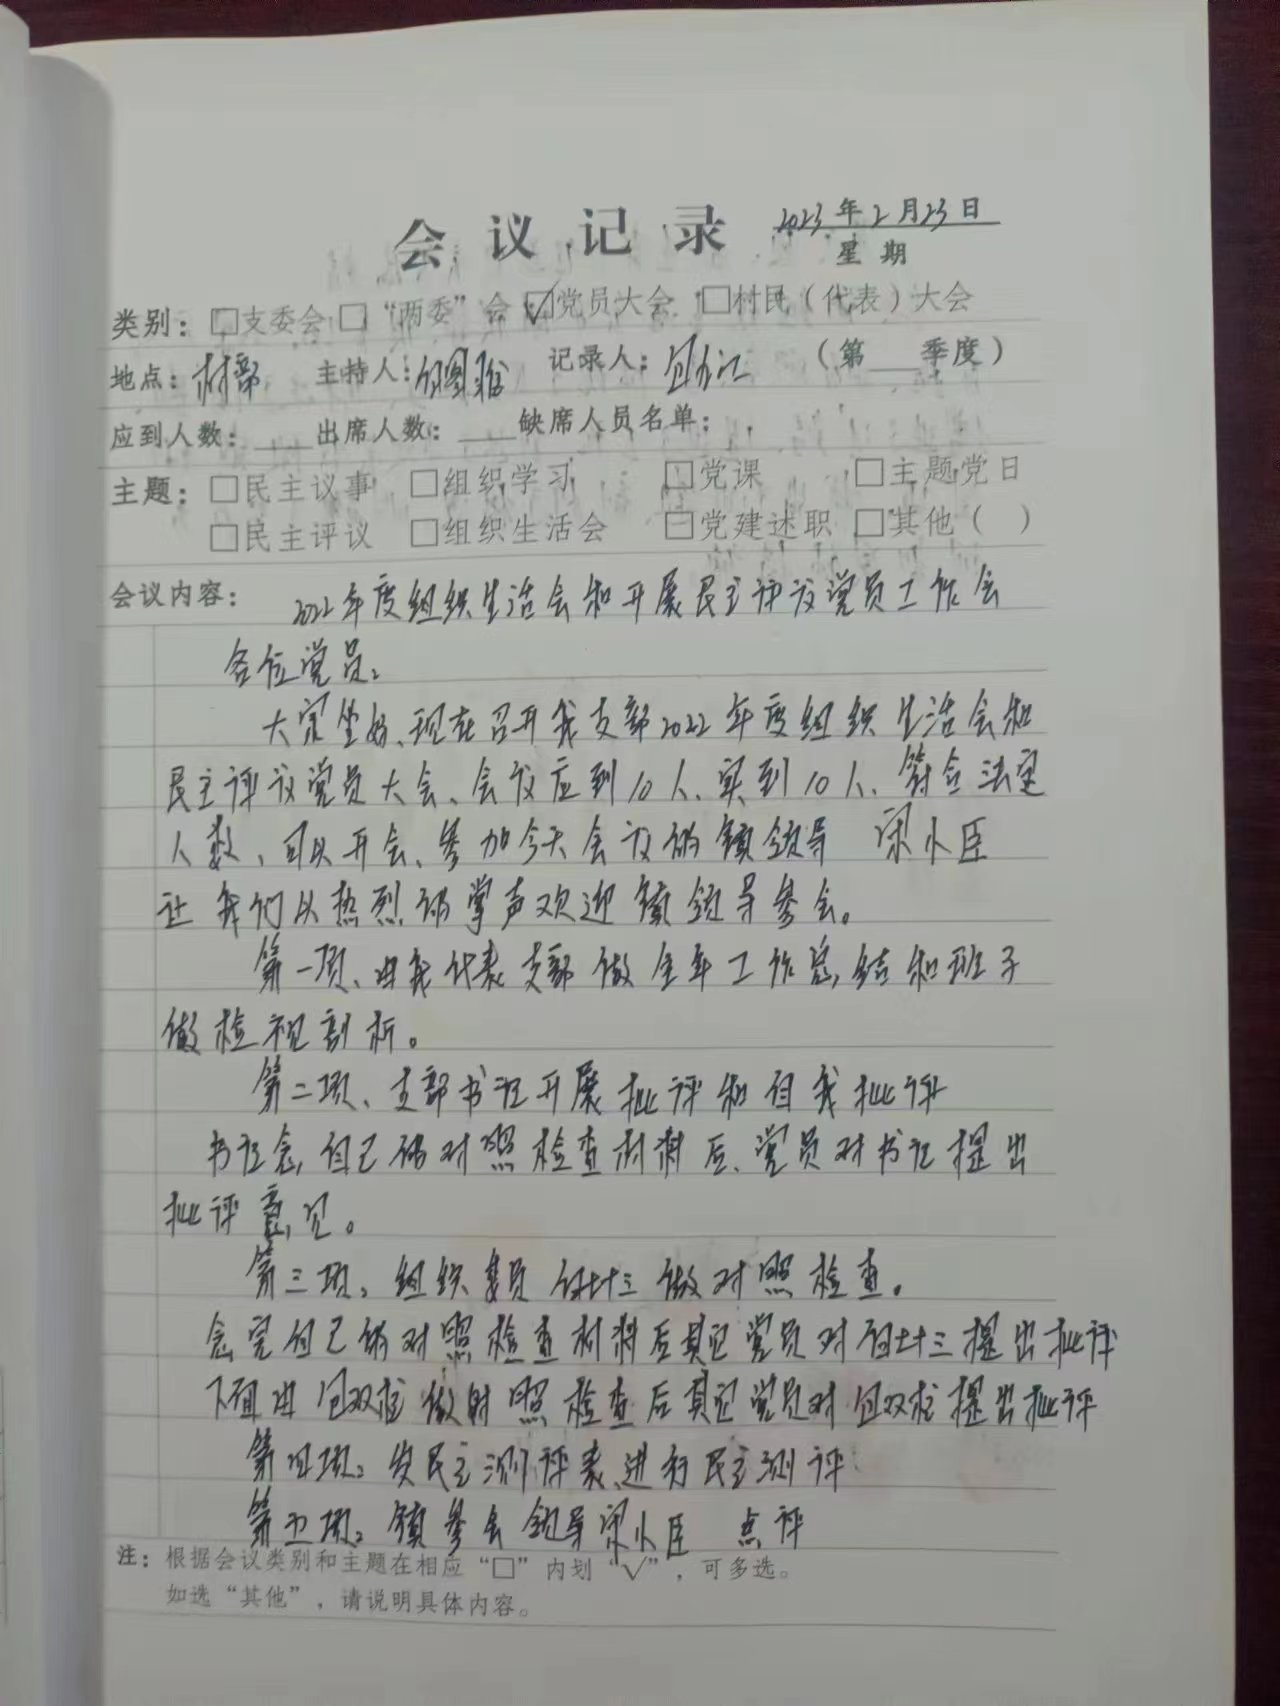 会议记录 2023年2月23日
星期
类别：□支委会 □“两委”会 ☑党员大会 □村民（代表）大会
地点：村部 主持人： 记录人： （第 季度）
应到人数： 出席人数： 缺席人员名单：
主题：□民主议事 □组织学习 □党课 □主题党日
□民主评议 □组织生活会 □党建述职 □其他（ ）
会议内容： 2022年度组织生活会和开展民主评议党员工作会
各位党员：
大家坐好、现在召开我支部2022年度组织生活会和
民主评议党员大会、会议应到10人、实到10人、符合法定
人数、可以开会、参加今天会议的镇领导 宋小臣
让我们以热烈的掌声欢迎镇领导参会。
第一项、由我代表支部做全年工作总结和班子
做检视剖析。
第二项、支部书记开展批评和自我批评
书记念自己的对照检查材料后、党员对书记提出
批评意见。
第三项：组织委员 包七十三做对照检查。
念完自己的对照检查材料后其它党员对包七十三提出批评
下面由包双柱做对照检查后其它党员对包双柱提出批评
第四项：发民主测评表进行民主测评
第五项：镇参会领导宋小臣 点评
注：根据会议类别和主题在相应“□”内划“√”，可多选。
如选“其他”，请说明具体内容。